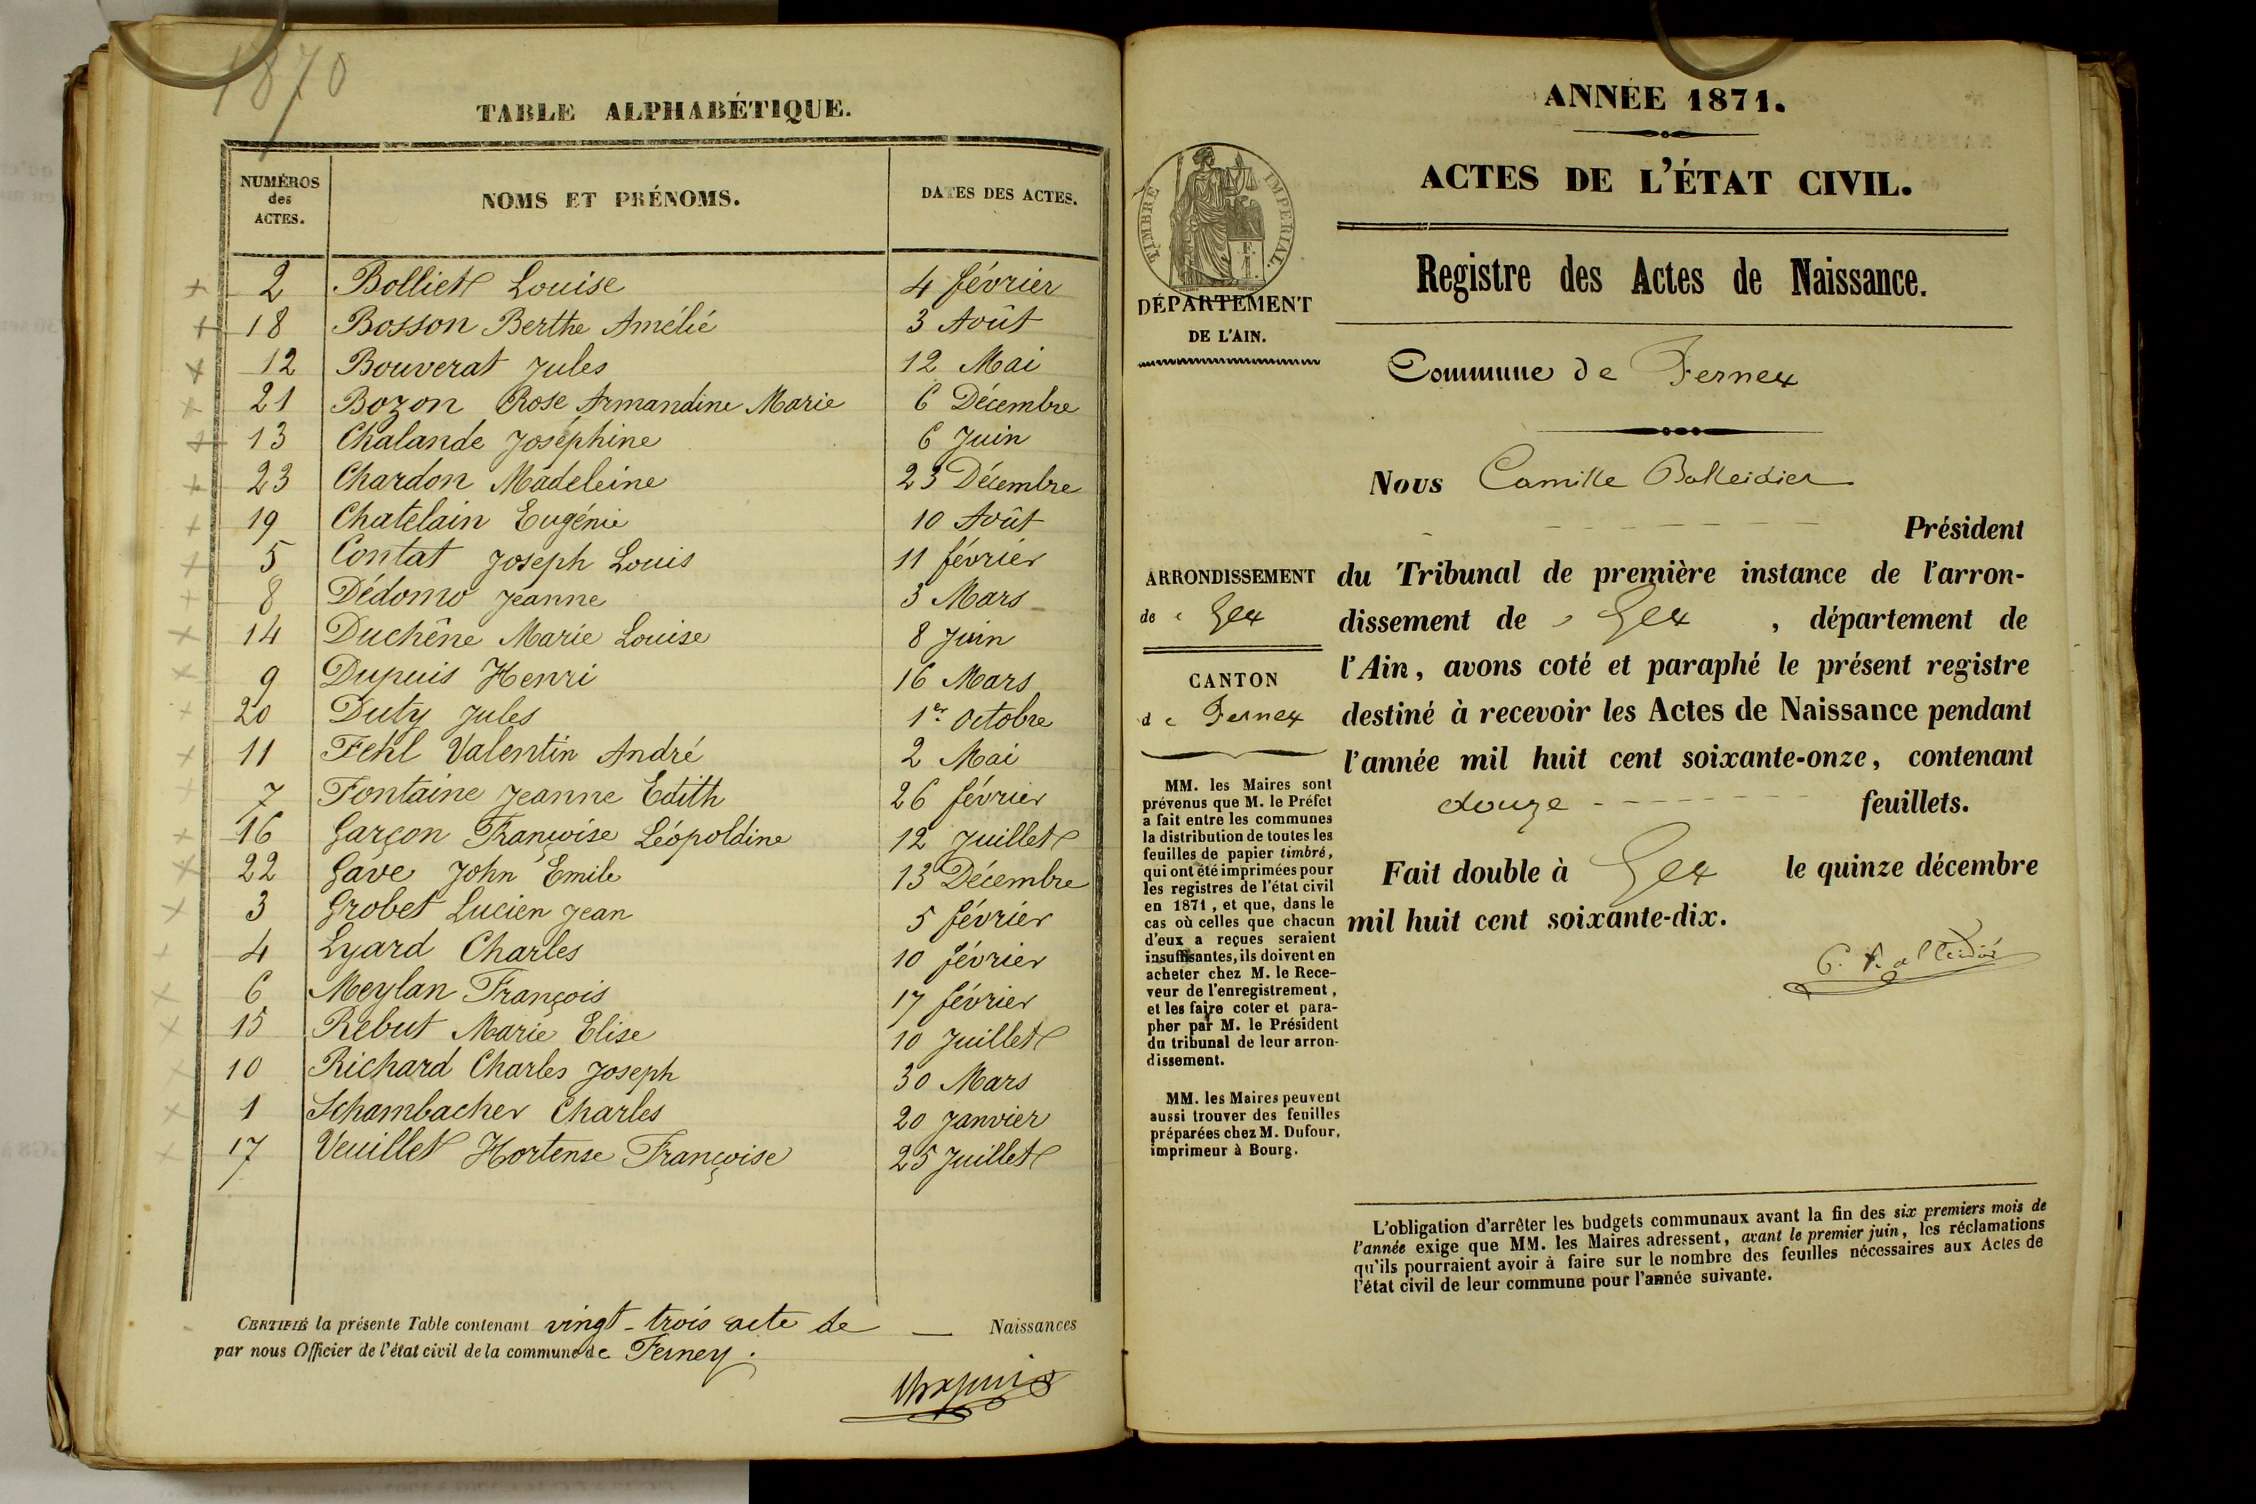 1870
TABLE ALPHABÉTIQUE.
NUMÉROS des ACTES.
NOMS ET PRÉNOMS.
DATES DES ACTES.
2 Bolliet Louise 4 février
18 Bosson Berthe Amélié 3 Août
12 Bouverat Jules 12 Mai
21 Bozon Rose Armandine Marie 6 Décembre
13 Chalande Joséphine 6 Juin
23 Chardon Madeleine 23 Décembre
19 Chatelain Eugénie 10 Août
5 Contat Joseph Louis 11 février
8 Dédomo Jeanne 3 Mars
14 Duchêne Marie Louise 8 Juin
9 Dupuis Henri 16 Mars
20 Duty Jules 1er Octobre
11 Fehl Valentin André 2 Mai
7 Fontaine Jeanne Edith 26 février
16 Garçon Françoise Léopoldine 12 Juillet
22 Gave John Emile 13 Décembre
3 Grobet Lucien Jean 5 février
4 Lyard Charles 10 février
6 Meylan François 17 février
15 Rebut Marie Elise 10 Juillet
10 Richard Charles Joseph 30 Mars
1 Schambacher Charles 20 Janvier
17 Veuillet Hortense Françoise 25 Juillet
CERTIFIÉ la présente Table contenant vingt-trois acte de — Naissances
par nous Officier de l'état civil de la commune de Ferney.
Chapuis
ANNÉE 1871.
ACTES DE L'ÉTAT CIVIL.
TIMBRE IMPÉRIAL.
DÉPARTEMENT
DE L'AIN.
Registre des Actes de Naissance.
Commune de Fernex
Nous Camille Balleidier
Président
ARRONDISSEMENT
de Gex
CANTON
de Fernex
du Tribunal de première instance de l'arron-
dissement de Gex, département de
l'Ain, avons coté et paraphé le présent registre
destiné à recevoir les Actes de Naissance pendant
l'année mil huit cent soixante-onze, contenant
douze feuillets.
Fait double à Gex le quinze décembre
mil huit cent soixante-dix.
C. Balleidier
MM. les Maires sont
prévenus que M. le Préfet
a fait entre les communes
la distribution de toutes les
feuilles de papier timbré,
qui ont été imprimées pour
les registres de l'état civil
en 1871, et que, dans le
cas où celles que chacun
d'eux a reçues seraient
insuffisantes, ils doivent en
acheter chez M. le Rece-
veur de l'enregistrement,
et les faire coter et para-
pher par M. le Président
du tribunal de leur arron-
dissement.
MM. les Maires peuvent
aussi trouver des feuilles
préparées chez M. Dufour,
imprimeur à Bourg.
L'obligation d'arrêter les budgets communaux avant la fin des six premiers mois de
l'année exige que MM. les Maires adressent, avant le premier juin, les réclamations
qu'ils pourraient avoir à faire sur le nombre des feuilles nécessaires aux Actes de
l'état civil de leur commune pour l'année suivante.